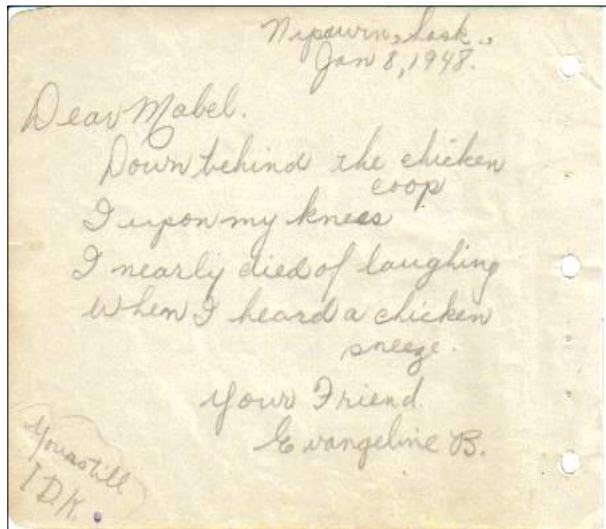 Nipawin, Sask.,
Jan 8, 1948.
Dear Mabel.
Down behind the chicken
coop
I upon my knees
I nearly died of laughing
When I heard a chicken
sneeze.
Your Friend
Evangeline B.
Yours till
I.D.K.